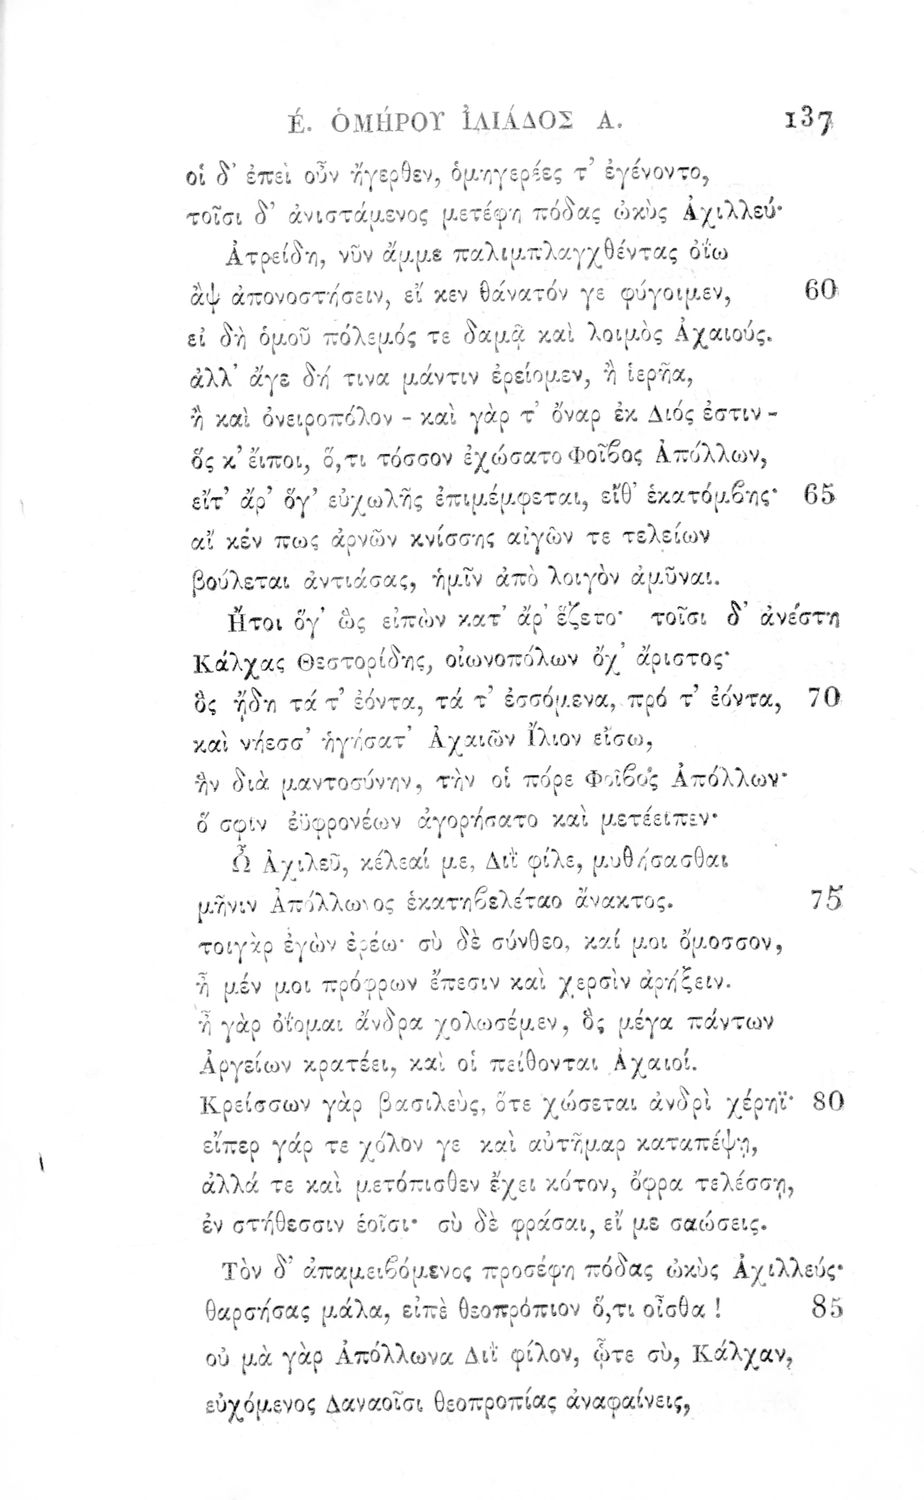 É. ὉΜΉΡΟΥ ἸΛΙΆΔΟΣ Α. 137
οἱ δ' ἐπεὶ οὖν ἤγερθεν, ὁμηγερέες τ' ἐγένοντο,
τοῖσι δ' ἀνιστάμενος μετέφη πόδας ὠκὺς Ἀχιλλεύ·
Ἀτρείδη, νῦν ἄμμε παλιμπλαγχθέντας ὀΐω
ἂψ ἀπονοστήσειν, εἴ κεν θάνατόν γε φύγοιμεν, 60
εἰ δὴ ὁμοῦ πόλεμός τε δαμᾷ καὶ λοιμὸς Ἀχαιούς.
ἀλλ' ἄγε δή τινα μάντιν ἐρείομεν, ἢ ἱερῆα,
ἢ καὶ ὀνειροπόλον - καὶ γὰρ τ' ὄναρ ἐκ Διός ἐστιν -
ὅς κ' εἴποι, ὅ,τι τόσσον ἐχώσατο Φοῖϐος Ἀπόλλων,
εἴτ' ἄρ' ὅγ' εὐχωλῆς ἐπιμέμφεται, εἴθ' ἑκατόμϐης· 65
αἴ κέν πως ἀρνῶν κνίσσης αἰγῶν τε τελείων
βούλεται ἀντιάσας, ἡμῖν ἀπὸ λοιγὸν ἀμῦναι.
Ἤτοι ὅγ' ὣς εἰπὼν κατ' ἄρ' ἕζετο· τοῖσι δ' ἀνέστη
Κάλχας Θεστορίδης, οἰωνοπόλων ὄχ' ἄριστος·
ὃς ᾔδη τά τ' ἐόντα, τά τ' ἐσσόμενα, πρό τ' ἐόντα, 70
καὶ νήεσσ' ἡγήσατ' Ἀχαιῶν Ἴλιον εἴσω,
ἣν διὰ μαντοσύνην, τὴν οἱ πόρε Φοῖϐος Ἀπόλλων·
ὅ σφιν ἐϋφρονέων ἀγορήσατο καὶ μετέειπεν·
Ὦ Ἀχιλεῦ, κέλεαί με, Διῒ φίλε, μυθήσασθαι
μῆνιν Ἀπόλλωνος ἑκατηϐελέταο ἄνακτος. 75
τοιγὰρ ἐγὼν ἐρέω· σὺ δὲ σύνθεο, καί μοι ὄμοσσον,
ἦ μέν μοι πρόφρων ἔπεσιν καὶ χερσὶν ἀρήξειν.
ἦ γὰρ ὀΐομαι ἄνδρα χολωσέμεν, ὃς μέγα πάντων
Ἀργείων κρατέει, καὶ οἱ πείθονται Ἀχαιοί.
Κρείσσων γὰρ βασιλεὺς, ὅτε χώσεται ἀνδρὶ χέρηϊ· 80
εἴπερ γάρ τε χόλον γε καὶ αὐτῆμαρ καταπέψῃ,
ἀλλά τε καὶ μετόπισθεν ἔχει κότον, ὄφρα τελέσσῃ,
ἐν στήθεσσιν ἑοῖσι· σὺ δὲ φράσαι, εἴ με σαώσεις.
Τὸν δ' ἀπαμειϐόμενος προσέφη πόδας ὠκὺς Ἀχιλλεύς·
θαρσήσας μάλα, εἰπὲ θεοπρόπιον ὅ,τι οἶσθα ! 85
οὐ μὰ γὰρ Ἀπόλλωνα Διῒ φίλον, ᾧτε σὺ, Κάλχαν,
εὐχόμενος Δαναοῖσι θεοπροπίας ἀναφαίνεις,